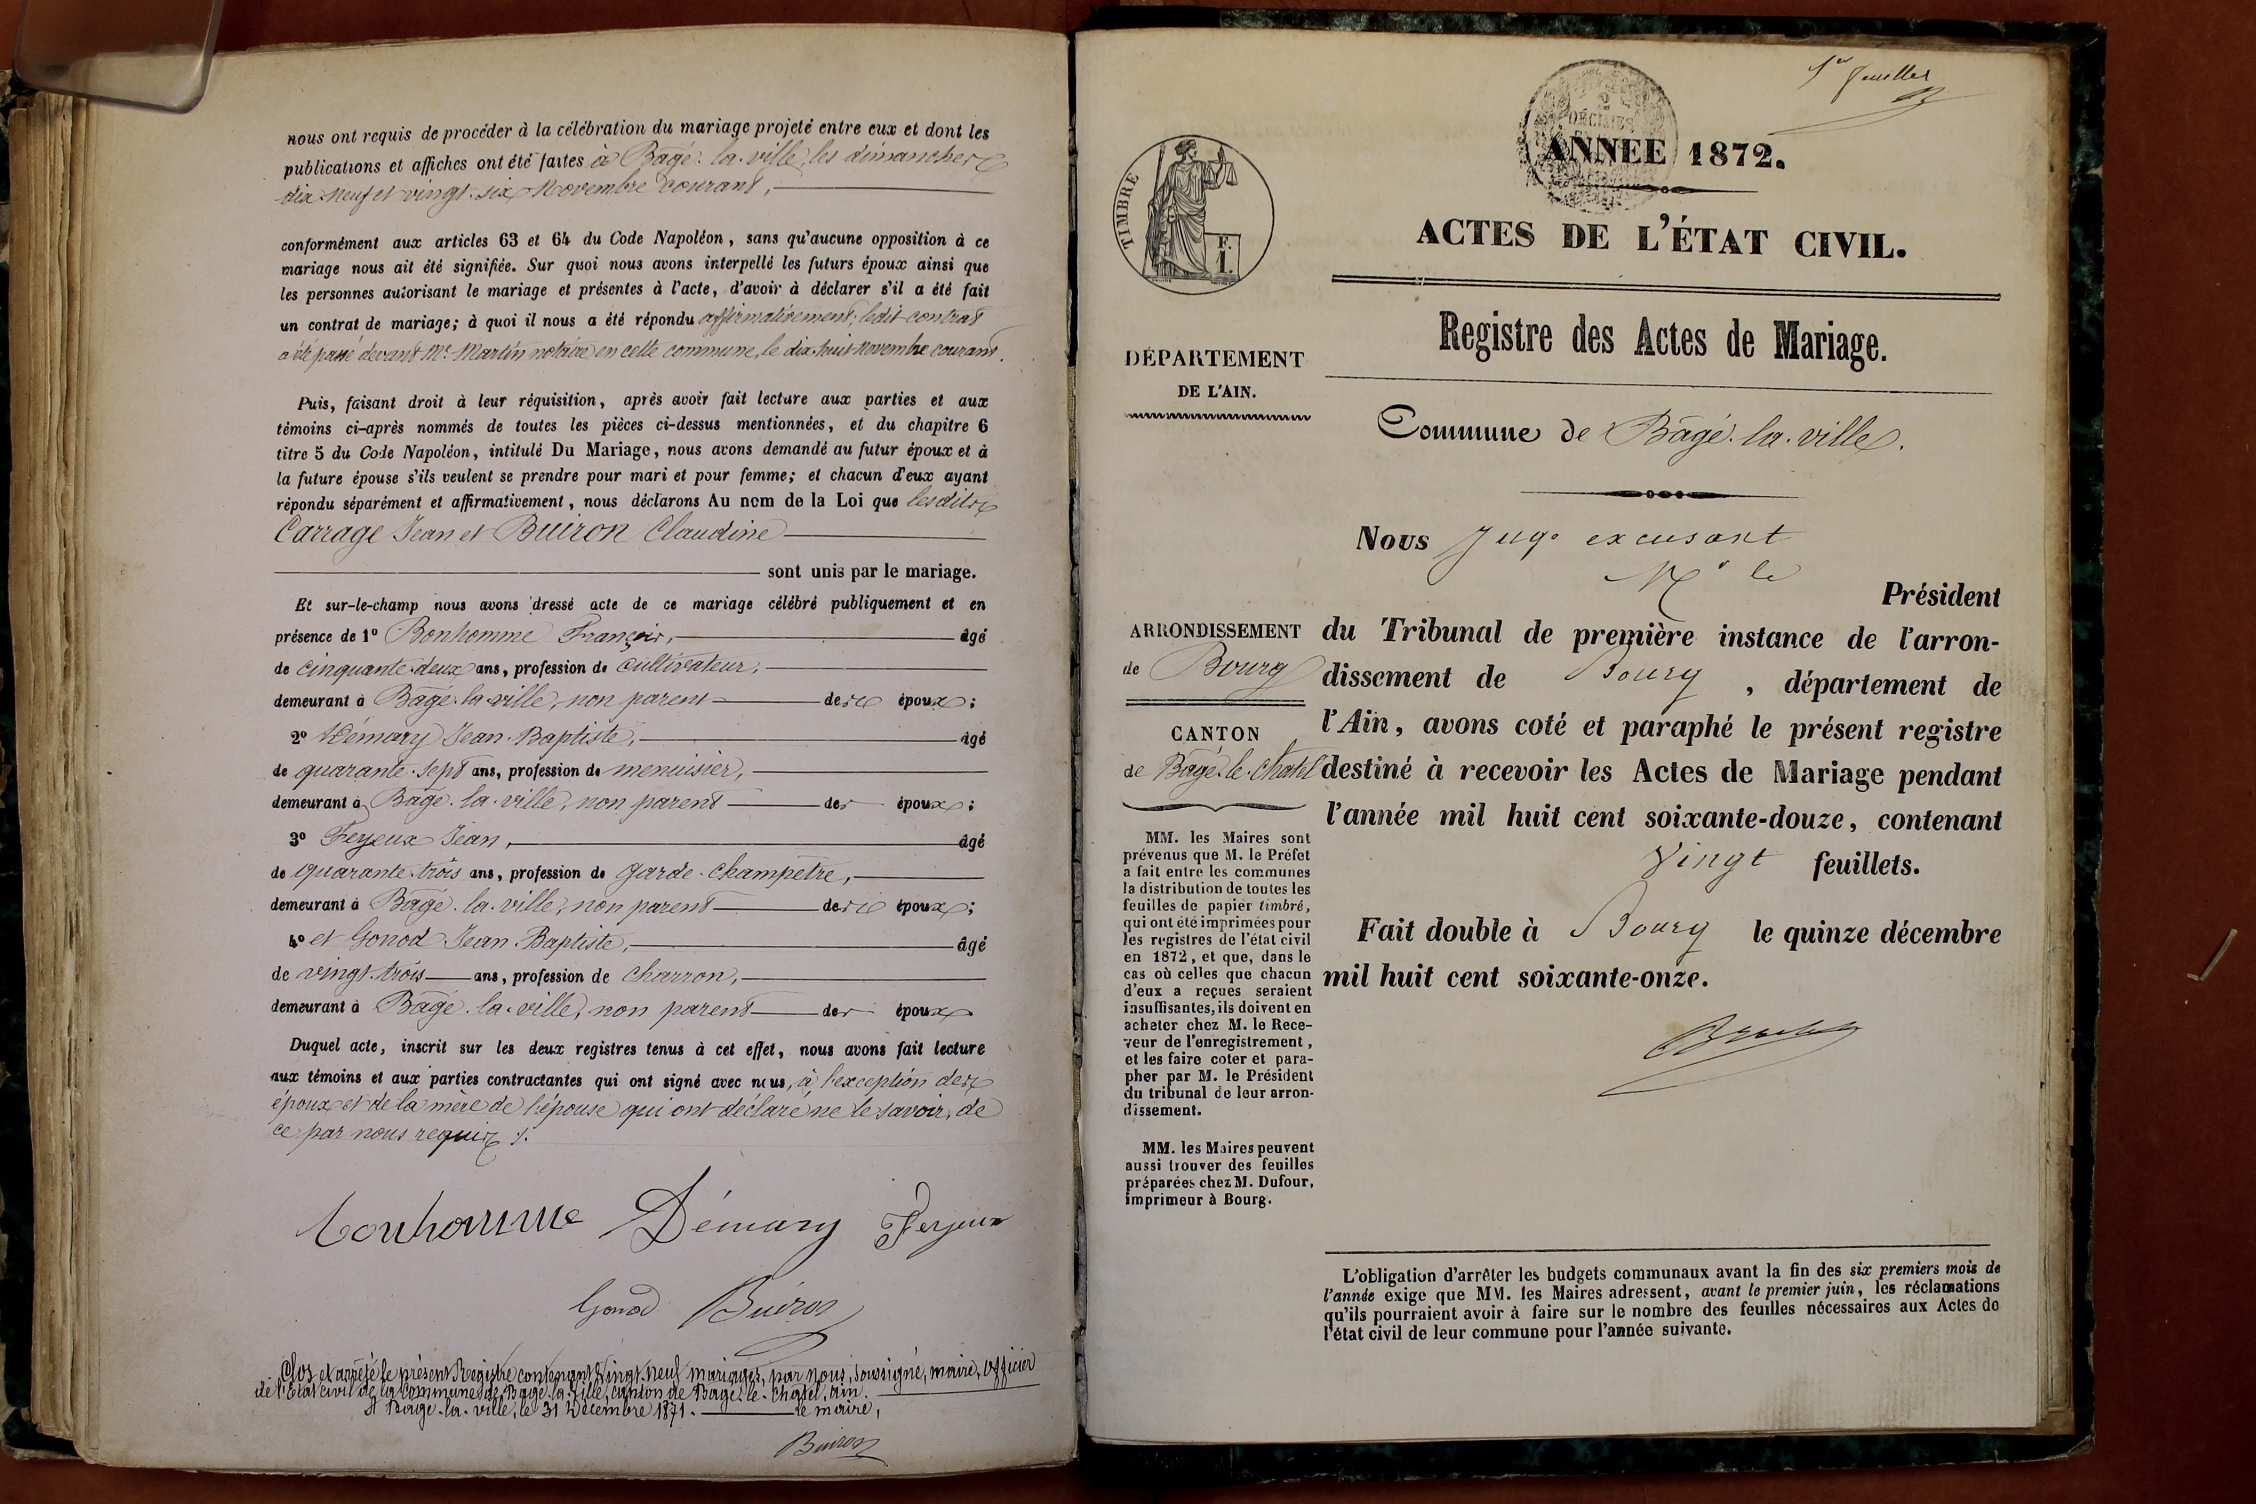 nous ont requis de procéder à la célébration du mariage projeté entre eux et dont les
publications et affiches ont été faites à Bâgé-la-ville, les dimanches
dix-neuf et vingt-six Novembre courant,
conformément aux articles 63 et 64 du Code Napoléon, sans qu'aucune opposition à ce
mariage nous ait été signifiée. Sur quoi nous avons interpellé les futurs époux ainsi que
les personnes autorisant le mariage et présentes à l'acte, d'avoir à déclarer s'il a été fait
un contrat de mariage; à quoi il nous a été répondu affirmativement; ledit contrat
a été passé devant Me Martin notaire en cette commune, le dix-huit Novembre courant.
Puis, faisant droit à leur réquisition, après avoir fait lecture aux parties et aux
témoins ci-après nommés de toutes les pièces ci-dessus mentionnées, et du chapitre 6
titre 5 du Code Napoléon, intitulé Du Mariage, nous avons demandé au futur époux et à
la future épouse s'ils veulent se prendre pour mari et pour femme; et chacun d'eux ayant
répondu séparément et affirmativement, nous déclarons Au nom de la Loi que lesdits
Carrage Jean et Buiron Claudine
sont unis par le mariage.
Et sur-le-champ nous avons dressé acte de ce mariage célébré publiquement et en
présence de 1º Bonhomme François, âgé
de cinquante-deux ans, profession de cultivateur,
demeurant à Bâgé-la-ville, non parent des époux;
2º Démary Jean-Baptiste, âgé
de quarante-sept ans, profession de menuisier,
demeurant à Bâgé-la-ville, non parent des époux;
3º Feyeux Jean, âgé
de quarante-trois ans, profession de garde-champêtre,
demeurant à Bâgé-la-ville, non parent des époux;
4º et Gonod Jean-Baptiste, âgé
de vingt-trois ans, profession de charron,
demeurant à Bâgé-la-ville, non parent des époux
Duquel acte, inscrit sur les deux registres tenus à cet effet, nous avons fait lecture
aux témoins et aux parties contractantes qui ont signé avec nous, à l'exception des
époux et de la mère de l'épouse qui ont déclaré ne le savoir, de
ce par nous requis ./.
Bonhomme Démary Feyeux
Gonod Buiron
Clos et arrêté le présent Registre contenant Vingt-neuf mariages, par nous, soussigné, maire, Officier
de l'Etat civil de la commune de Bâgé-la-ville, canton de Bâgé-le-Châtel, ain.
A Bâgé-la-ville, le 31 Décembre 1871. le maire,
Buiron
1er feuillet
2
DÉCIMES
ANNÉE 1872.
TIMBRE
F.
I.
ACTES DE L'ÉTAT CIVIL.
Registre des Actes de Mariage.
DÉPARTEMENT
DE L'AIN.
Commune de Bâgé-la-ville.
ARRONDISSEMENT
de Bourg
CANTON
de Bâgé-le-Châtel
MM. les Maires sont
prévenus que M. le Préfet
a fait entre les communes
la distribution de toutes les
feuilles de papier timbré,
qui ont été imprimées pour
les registres de l'état civil
en 1872, et que, dans le
cas où celles que chacun
d'eux a reçues seraient
insuffisantes, ils doivent en
acheter chez M. le Rece-
veur de l'enregistrement,
et les faire coter et para-
pher par M. le Président
du tribunal de leur arron-
dissement.
MM. les Maires peuvent
aussi trouver des feuilles
préparées chez M. Dufour,
imprimeur à Bourg.
Nous Juge excusant
Mr le
Président
du Tribunal de première instance de l'arron-
dissement de Bourg, département de
l'Ain, avons coté et paraphé le présent registre
destiné à recevoir les Actes de Mariage pendant
l'année mil huit cent soixante-douze, contenant
Vingt feuillets.
Fait double à Bourg le quinze décembre
mil huit cent soixante-onze.
L'obligation d'arrêter les budgets communaux avant la fin des six premiers mois de
l'année exige que MM. les Maires adressent, avant le premier juin, les réclamations
qu'ils pourraient avoir à faire sur le nombre des feuilles nécessaires aux Actes de
l'état civil de leur commune pour l'année suivante.